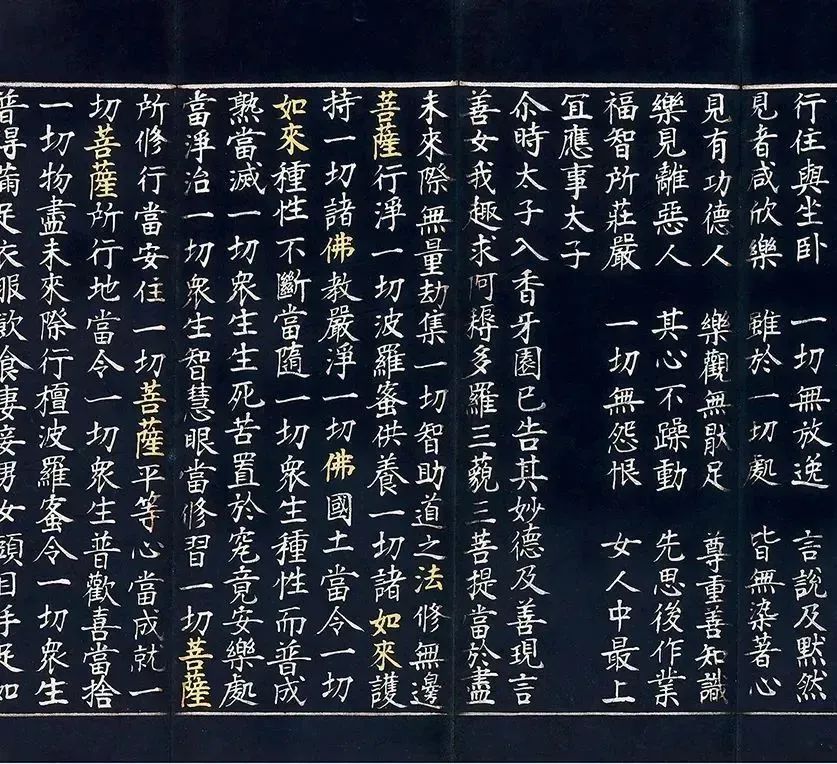 行住與坐卧　一切無放逸　言說及默然
見者咸欣樂　雖於一切處　皆無染著心
見有功德人　樂觀無猒足　尊重善知識
樂見離惡人　其心不躁動　先思後作業
福智所莊嚴　一切無怨恨　女人中最上
冝應事太子
尒時太子入香牙園已告其妙德及善現言
善女我趣求阿耨多羅三藐三菩提當於盡
未來際無量劫集一切智助道之法修無邊
菩薩行淨一切波羅蜜供養一切諸如來護
持一切諸佛教嚴淨一切佛國土當令一切
如來種性不斷當隨一切衆生種性而普成
熟當滅一切衆生生死苦置於究竟安樂處
當淨治一切衆生智慧眼當修習一切菩薩
所修行當安住一切菩薩平等心當成就一
切菩薩所行地當令一切衆生普歡喜當捨
一切物盡未來際行檀波羅蜜令一切衆生
普得滿足衣服飲食妻妾男女頭目手足如